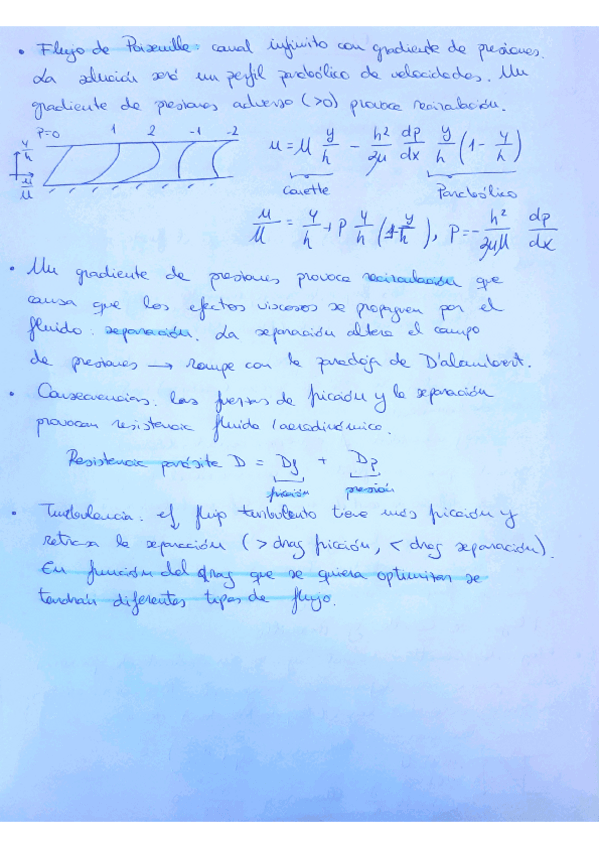 • Flujo de Poiseuille: canal infinito con gradiente de presiones.
La solución será un perfil parabólico de velocidades. Un
gradiente de presiones adverso (>0) provoca recirculación.
P=0 1 2 -1 -2
y/h
u/U
u = U y/h - h²/2μ dp/dx y/h (1 - y/h)
Couette Parabólico
u/U = y/h + P y/h (1-y/h), P = - h²/2μU dp/dx
• Un gradiente de presiones provoca recirculación que
causa que los efectos viscosos se propaguen por el
fluido: separación. La separación altera el campo
de presiones → rompe con la paradoja de D'alambert.
• Consecuencias: las fuerzas de fricción y la separación
provocan resistencia fluida/aerodinámica.
Resistencia parásita D = Df + Dp
fricción presión
• Turbulencia: el flujo turbulento tiene más fricción y
retrasa la separación (> drag fricción, < drag separación).
En función del drag que se quiera optimizar se
tendrán diferentes tipos de flujo.